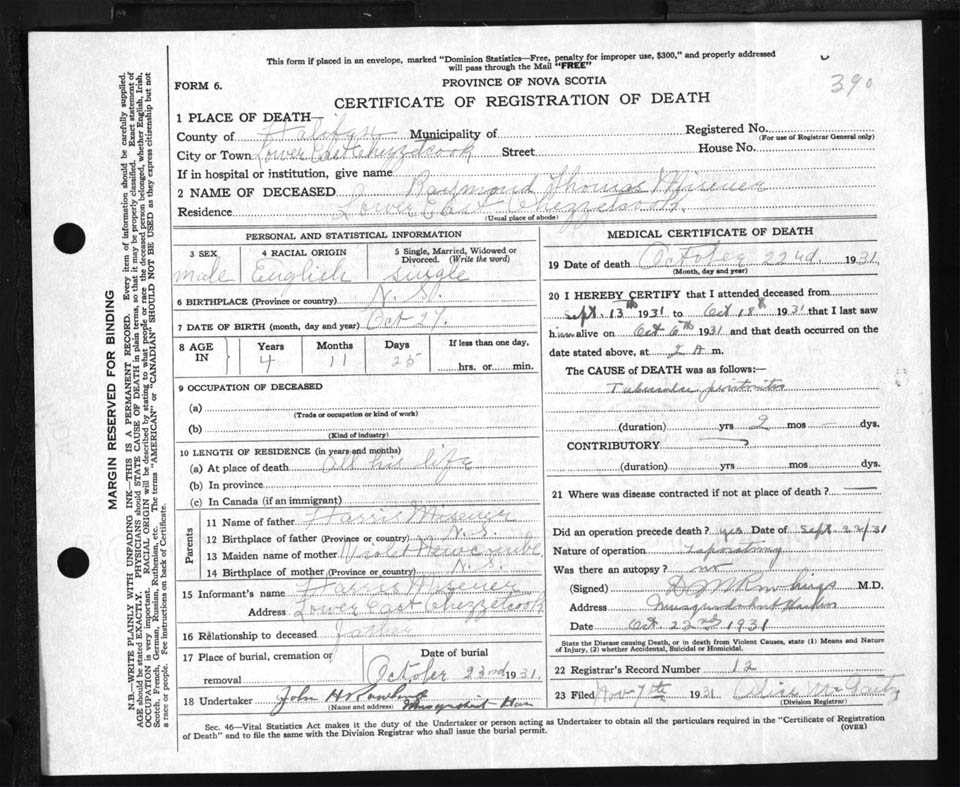 This form if placed in an envelope, marked "Dominion Statistics—Free, penalty for improper use, $300," and properly addressed
will pass through the Mail "FREE"
390
FORM 6.
PROVINCE OF NOVA SCOTIA
CERTIFICATE OF REGISTRATION OF DEATH
1 PLACE OF DEATH
County of Halifax Municipality of
Registered No.
(For use of Registrar General only)
City or Town Lower East Chezzetcook Street House No.
If in hospital or institution, give name
2 NAME OF DECEASED Raymond Thomas Misener
Residence Lower East Chezzetcook
(Usual place of abode)
PERSONAL AND STATISTICAL INFORMATION
3 SEX 4 RACIAL ORIGIN 5 Single, Married, Widowed or
Divorced. (Write the word)
male English single
6 BIRTHPLACE (Province or country) N.S.
7 DATE OF BIRTH (month, day and year) Oct 27.
8 AGE IN Years Months Days If less than one day,
4 11 25 hrs. or min.
9 OCCUPATION OF DECEASED
(a)
(Trade or occupation or kind of work)
(b)
(Kind of industry)
10 LENGTH OF RESIDENCE (in years and months)
(a) At place of death All his life
(b) In province
(c) In Canada (if an immigrant)
Parents
11 Name of father Harris Misener
12 Birthplace of father (Province or country) N.S.
13 Maiden name of mother Violet Newcombe
14 Birthplace of mother (Province or country) N.S.
15 Informant's name Harris Misener
Address Lower East Chezzetcook
16 Relationship to deceased father
17 Place of burial, cremation or Date of burial
removal October 23rd 1931.
18 Undertaker John H
(Name and address)
MEDICAL CERTIFICATE OF DEATH
19 Date of death October 22nd. 1931
(Month, day and year)
20 I HEREBY CERTIFY that I attended deceased from
Sept. 13th 1931 to Oct 18th 1931 that I last saw
him alive on Oct 6th 1931 and that death occurred on the
date stated above, at A m.
The CAUSE of DEATH was as follows:—
Tubercular peritonitis
(duration) yrs 2 mos — dys.
CONTRIBUTORY
(duration) yrs mos dys.
21 Where was disease contracted if not at place of death?
Did an operation precede death? yes. Date of Sept. 22/31
Nature of operation Laparotomy
Was there an autopsy? no
(Signed) M.D.
Address Musquodoboit Harbor
Date Oct. 22nd 1931
State the Disease causing Death, or in death from Violent Causes, state (1) Means and Nature
of Injury, (2) whether Accidental, Suicidal or Homicidal.
22 Registrar's Record Number 12
23 Filed Nov 7th 1931
(Division Registrar)
Sec. 46—Vital Statistics Act makes it the duty of the Undertaker or person acting as Undertaker to obtain all the particulars required in the "Certificate of Registration
of Death" and to file the same with the Division Registrar who shall issue the burial permit.
(OVER)
MARGIN RESERVED FOR BINDING
N.B.—WRITE PLAINLY WITH UNFADING INK—THIS IS A PERMANENT RECORD. Every item of information should be carefully supplied.
AGE should be stated EXACTLY. PHYSICIANS should STATE CAUSE OF DEATH in plain terms, so that it may be properly classified. Exact statement of
OCCUPATION is very important. RACIAL ORIGIN will be described by stating to what people or race the deceased person belonged, whether English, Irish,
Scotch, French, German, Russian, Ruthenian, etc. The terms "AMERICAN" or "CANADIAN" SHOULD NOT BE USED as they express citizenship but not
a race or people. See instructions on back of Certificate.